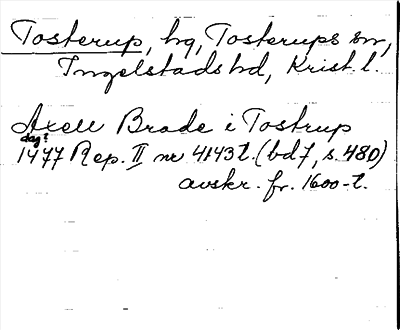 Tosterup, hg, Tosterups sn,
Ingelstads hd, Krist. l.
Axell Brade i Tostrup
dag?
1477 Rep. II nr 4143 t. (bd 7, s. 480)
avskr. fr. 1600-t.